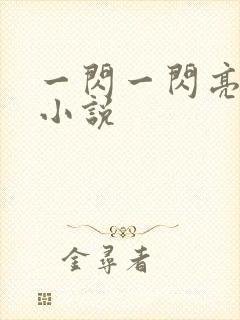 一閃一閃亮
小說
金尋者